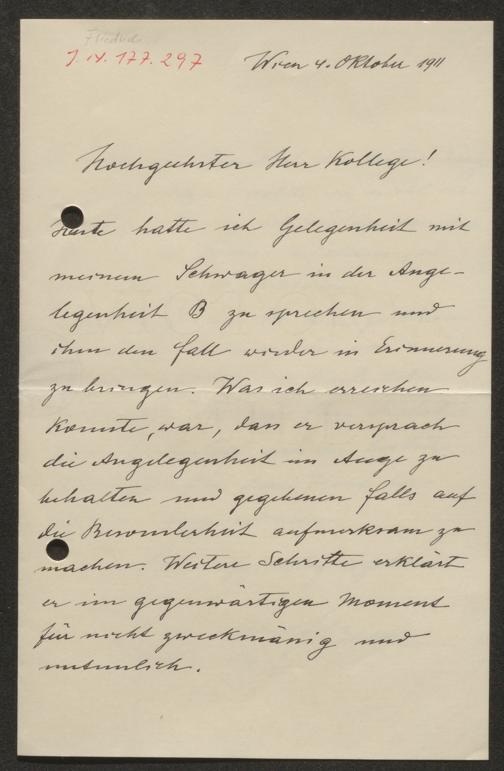 J.N. 177.297
Wien 4. Oktober 1911
Hochgeehrter Herr Kollege!
Heute hatte ich Gelegenheit mit
meinem Schwager in der Ange-
legenheit B zu sprechen und
ihm den Fall wieder in Erinnerung
zu bringen. Was ich erreichen
konnte, war, dass er versprach
die Angelegenheit im Auge zu
behalten und gegebenen Falls auf
die Besonderheit aufmerksam zu
machen. Weitere Schritte erklärt
er im gegenwärtigen Moment
für nicht zweckmässig und
untunlich.